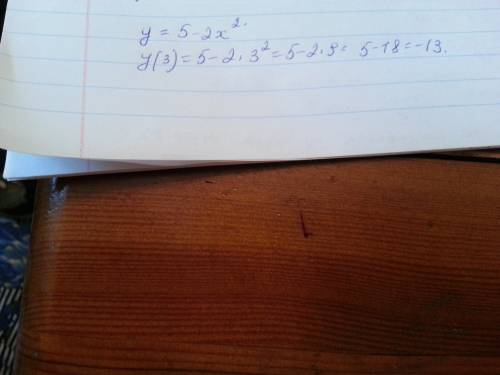 y = 5-2x².
y(3) = 5-2·3² = 5-2·9 = 5-18 = -13.